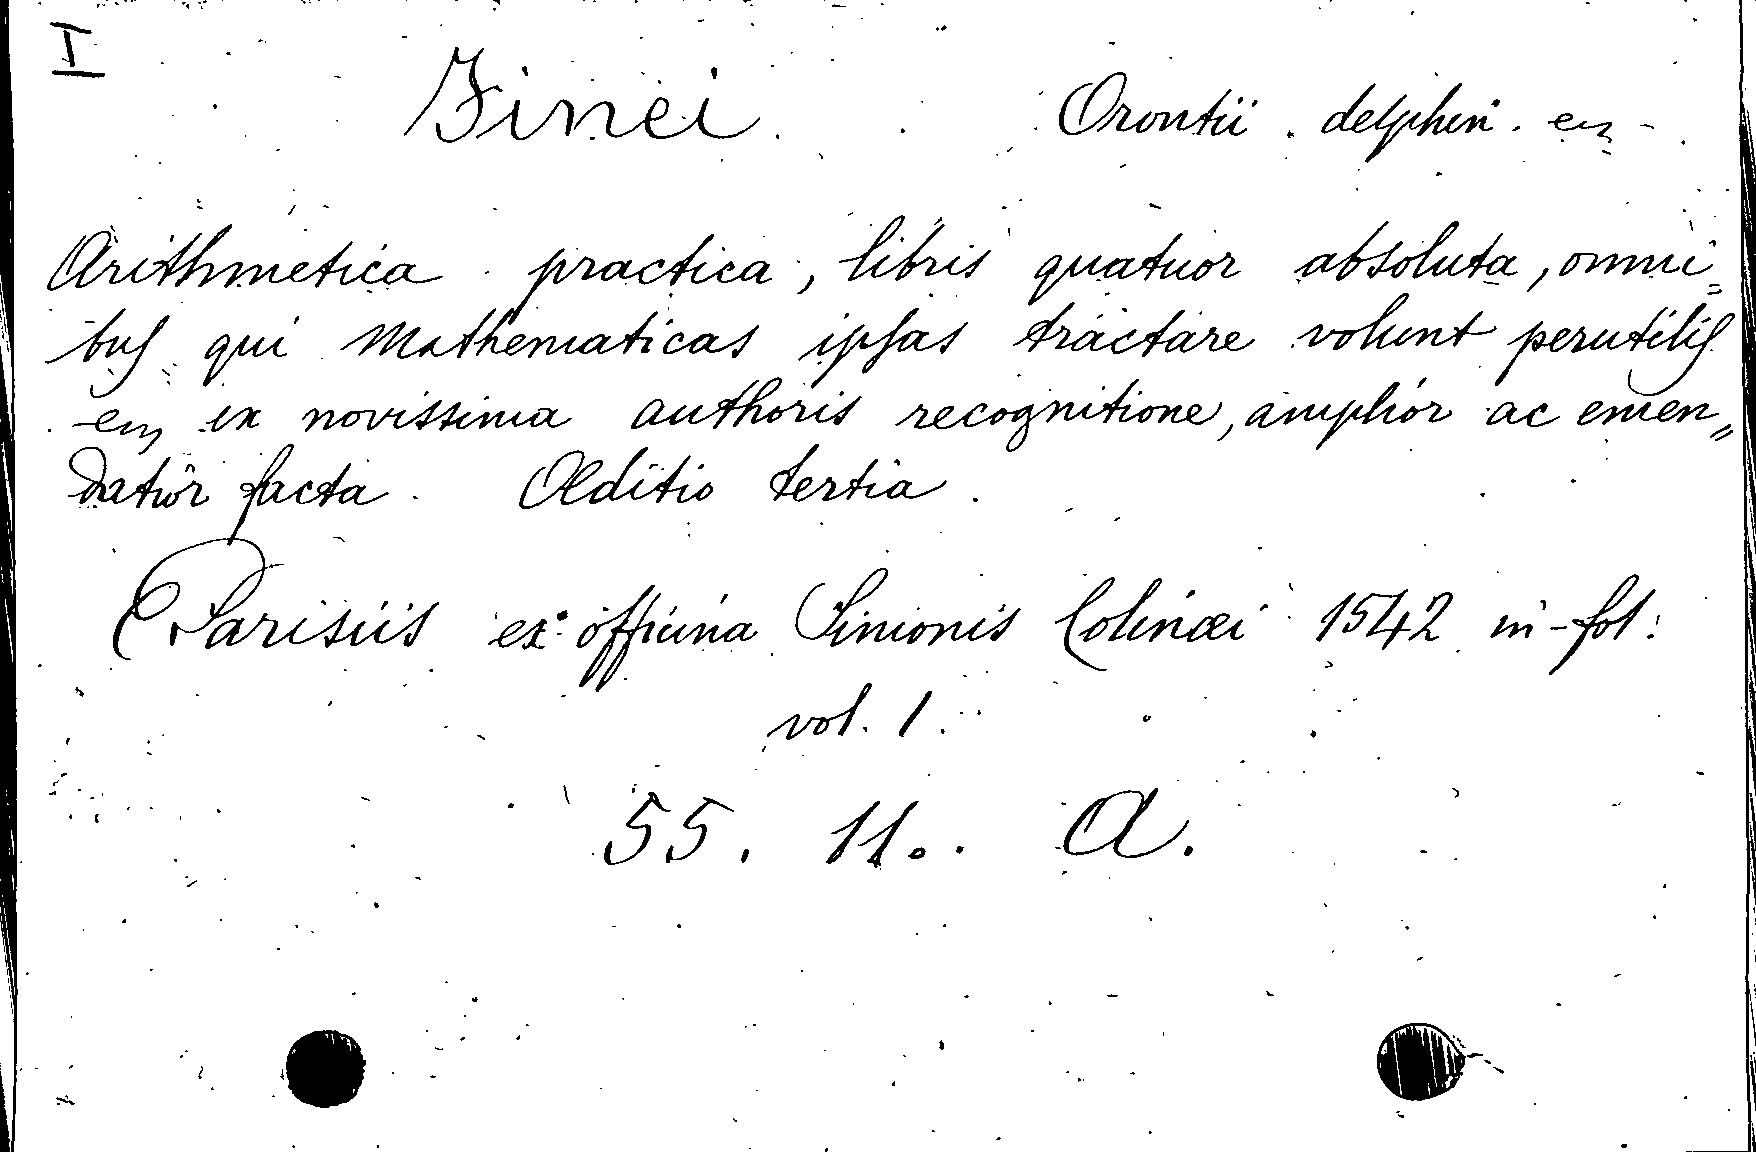 I
Finei. Orontii. delphin. en-
Arithmetica practica, libris quatuor absoluta, omni=
bus qui Mathematicas ipsas tractare volunt perutilis
en ex novissima authoris recognitione, amplior ac emen=
datior facta. Æditio tertia.
Parisiis ex officina Simonis Colinæi 1542 in-fol:
vol. 1.
55. 11.. A.